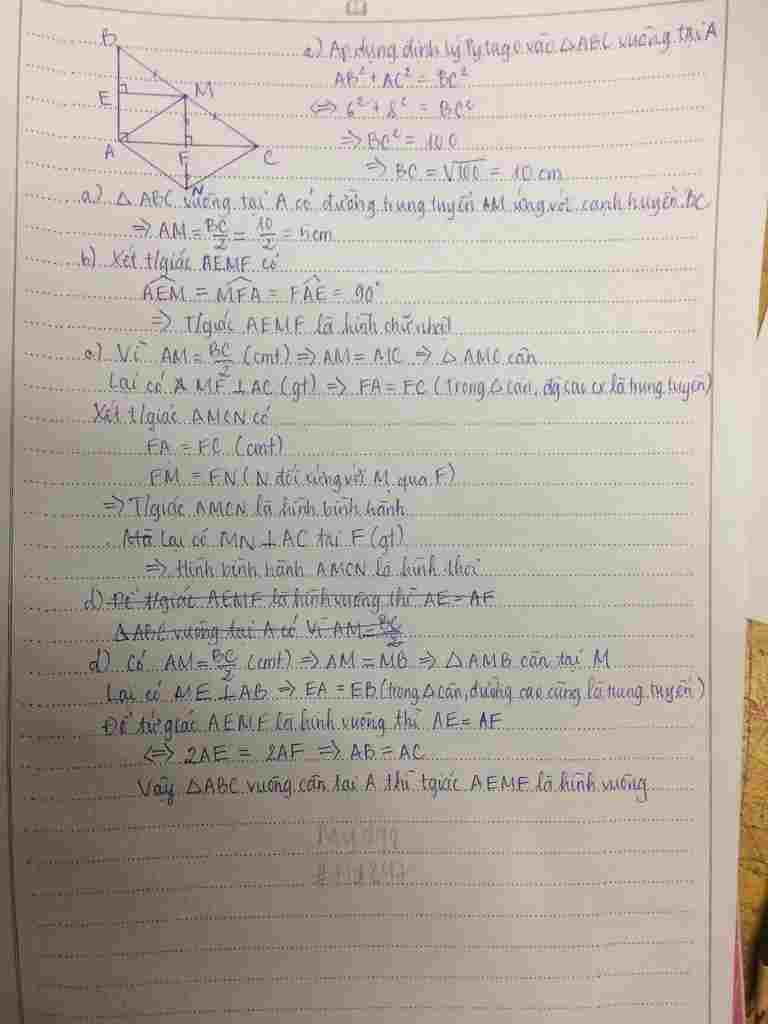 B
E
M
A
F
C
N
a) Áp dụng định lý Pytago vào △ABC vuông tại A
AB² + AC² = BC²
⇔ 6² + 8² = BC²
⇒ BC² = 100
⇒ BC = √100 = 10 cm
a) △ ABC vuông tại A có đường trung tuyến AM ứng với cạnh huyền BC
⇒ AM = BC/2 = 10/2 = 5cm
b) Xét t/giác AEMF có
AEM = MFA = FAE = 90°
⇒ T/giác AEMF là hình chữ nhật
c) Vì AM = BC/2 (cmt) ⇒ AM = MC ⇒ △ AMC cân
Lại có MF ⊥ AC (gt) ⇒ FA = FC (Trong △ cân, đg cao cx là trung tuyến)
Xét t/giác AMCN có
FA = FC (cmt)
FM = FN (N đối xứng với M qua F)
⇒ T/giác AMCN là hình bình hành
Mà lại có MN ⊥ AC tại F (gt)
⇒ Hình bình hành AMCN là hình thoi
d) Để t/giác AEMF là hình vuông thì AE = AF
△ABC vuông tại A có Vì AM = BC/2
d) Có AM = BC/2 (cmt) ⇒ AM = MB ⇒ △ AMB cân tại M
Lại có ME ⊥ AB ⇒ EA = EB (trong △ cân, đường cao cũng là trung tuyến)
Để tứ giác AEMF là hình vuông thì AE = AF
⇔ 2AE = 2AF ⇒ AB = AC
Vậy △ABC vuông cân tại A thì tgiác AEMF là hình vuông